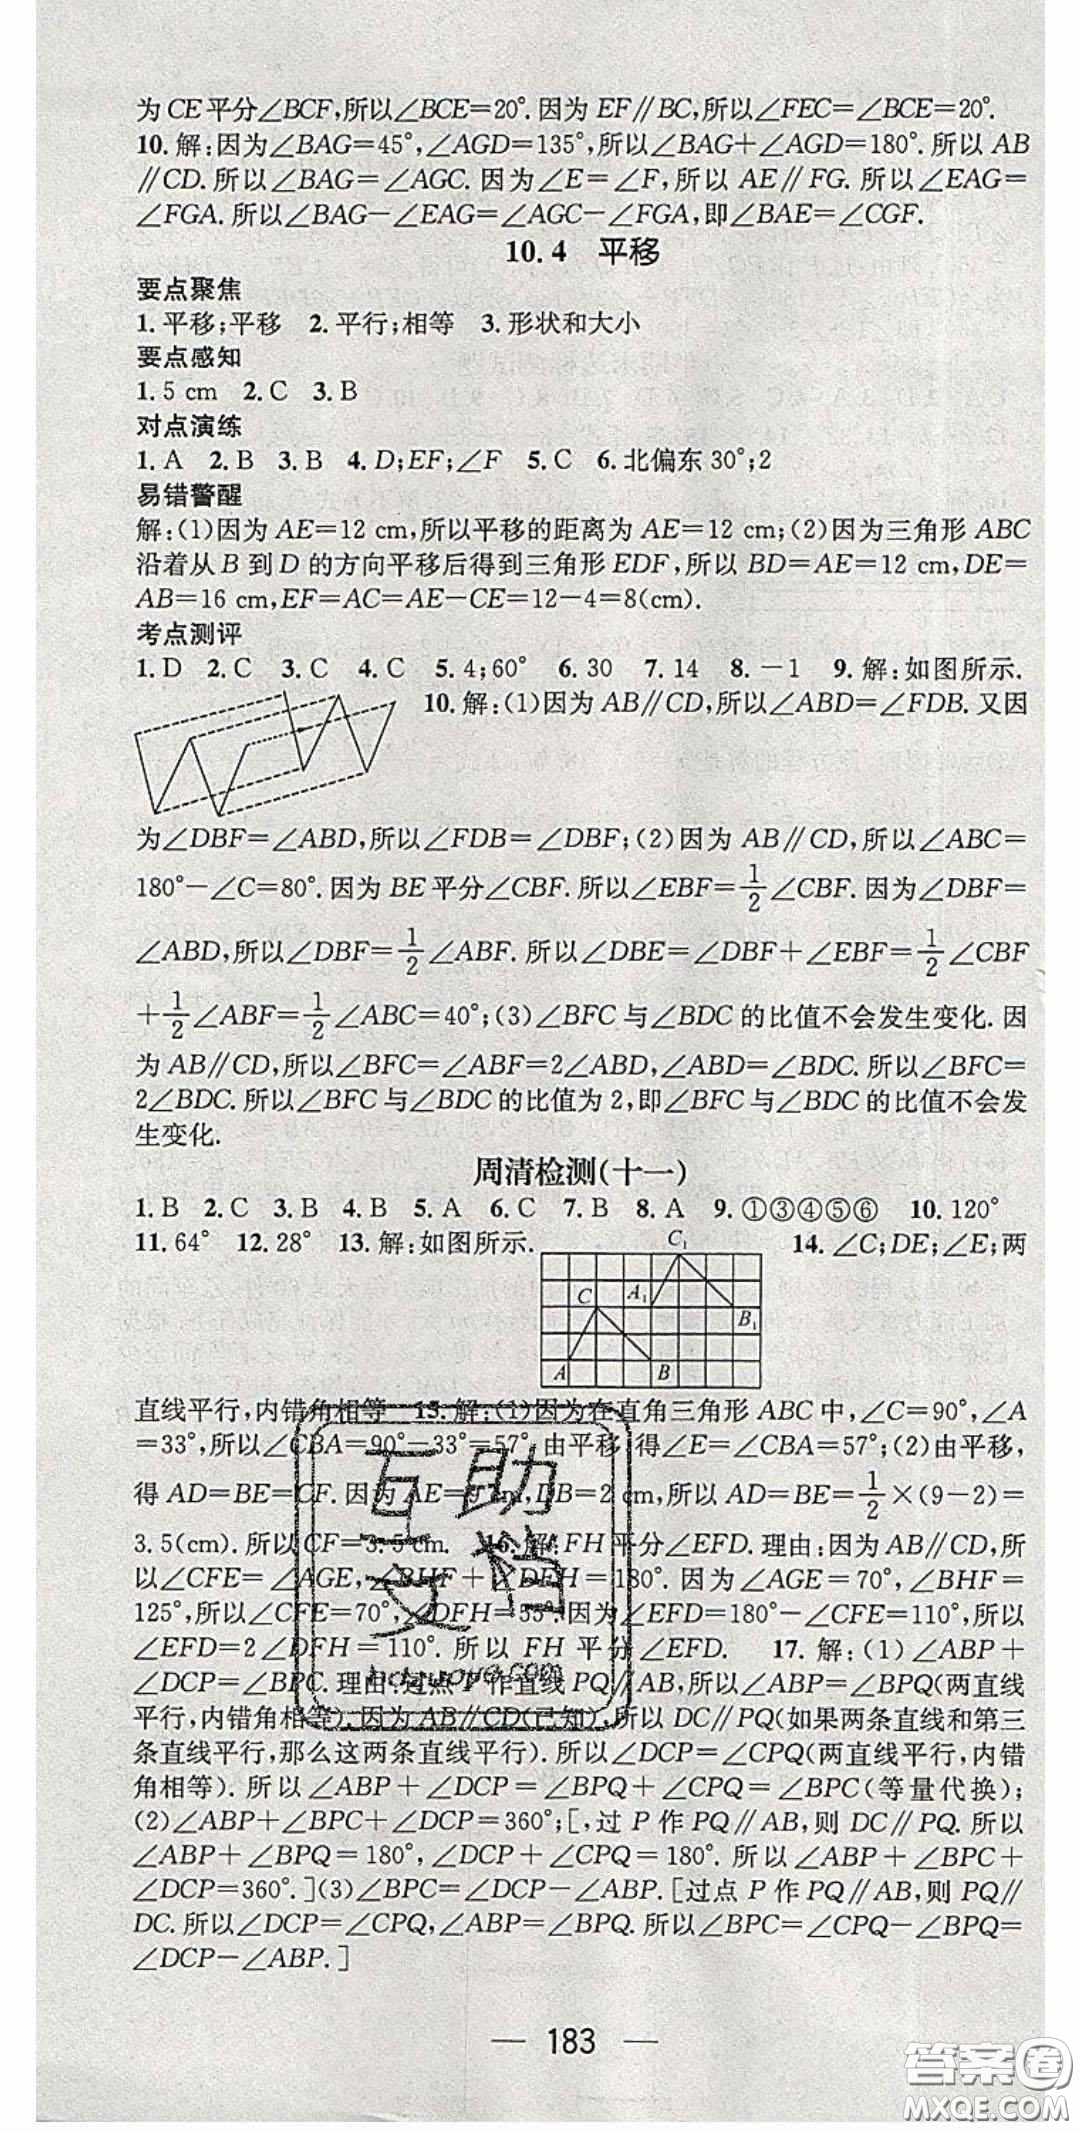 为CE平分∠BCF,所以∠BCE=20°.因为EF∥BC,所以∠FEC=∠BCE=20°.
10.解:因为∠BAG=45°,∠AGD=135°,所以∠BAG+∠AGD=180°.所以AB
∥CD.所以∠BAG=∠AGC.因为∠E=∠F,所以AE∥FG.所以∠EAG=
∠FGA.所以∠BAG-∠EAG=∠AGC-∠FGA,即∠BAE=∠CGF.
10.4 平移
要点聚焦
1.平移;平移 2.平行;相等 3.形状和大小
要点感知
1.5 cm 2.C 3.B
对点演练
1.A 2.B 3.B 4.D;EF;∠F 5.C 6.北偏东30°;2
易错警醒
解:(1)因为AE=12 cm,所以平移的距离为AE=12 cm;(2)因为三角形ABC
沿着从B到D的方向平移后得到三角形EDF,所以BD=AE=12 cm,DE=
AB=16 cm,EF=AC=AE-CE=12-4=8(cm).
考点测评
1.D 2.C 3.C 4.C 5.4;60° 6.30 7.14 8.-1 9.解:如图所示.
10.解:(1)因为AB∥CD,所以∠ABD=∠FDB.又因
为∠DBF=∠ABD,所以∠FDB=∠DBF;(2)因为AB∥CD,所以∠ABC=
180°-∠C=80°.因为BE平分∠CBF.所以∠EBF=1/2∠CBF.因为∠DBF=
∠ABD,所以∠DBF=1/2∠ABF.所以∠DBE=∠DBF+∠EBF=1/2∠CBF
+1/2∠ABF=1/2∠ABC=40°;(3)∠BFC与∠BDC的比值不会发生变化.因
为AB∥CD,所以∠BFC=∠ABF=2∠ABD,∠ABD=∠BDC.所以∠BFC=
2∠BDC.所以∠BFC与∠BDC的比值为2,即∠BFC与∠BDC的比值不会发
生变化.
周清检测(十一)
1.B 2.C 3.B 4.B 5.A 6.C 7.B 8.A 9.①③④⑤⑥ 10.120°
11.64° 12.28° 13.解:如图所示.
C₁
C A₁ B₁
A B
14.∠C;DE;∠E;两
直线平行,内错角相等 15.解:(1)因为在直角三角形ABC中,∠C=90°,∠A
=33°,所以∠CBA=90°-33°=57°.由平移,得∠E=∠CBA=57°;(2)由平移,
得AD=BE=CF.因为AE=9 cm,DB=2 cm,所以AD=BE=1/2×(9-2)=
3.5(cm).所以CF=3.5 cm. 16.解:FH平分∠EFD.理由:因为AB∥CD,所
以∠CFE=∠AGE,∠BHF+∠DFH=180°.因为∠AGE=70°,∠BHF=
125°,所以∠CFE=70°,∠DFH=55°.因为∠EFD=180°-∠CFE=110°,所以
∠EFD=2∠DFH=110°.所以FH平分∠EFD. 17.解:(1)∠ABP+
∠DCP=∠BPC.理由:过点P作直线PQ∥AB,所以∠ABP=∠BPQ(两直线
平行,内错角相等).因为AB∥CD(已知),所以DC∥PQ(如果两条直线和第三
条直线平行,那么这两条直线平行).所以∠DCP=∠CPQ(两直线平行,内错
角相等).所以∠ABP+∠DCP=∠BPQ+∠CPQ=∠BPC(等量代换);
(2)∠ABP+∠BPC+∠DCP=360°;[,过P作PQ∥AB,则DC∥PQ.所以
∠ABP+∠BPQ=180°,∠DCP+∠CPQ=180°.所以∠ABP+∠BPC+
∠DCP=360°.](3)∠BPC=∠DCP-∠ABP.[过点P作PQ∥AB,则PQ∥
DC.所以∠DCP=∠CPQ,∠ABP=∠BPQ.所以∠BPC=∠CPQ-∠BPQ=
∠DCP-∠ABP.]
互助
文档
— 183 —
答案卷
MXQE.COM